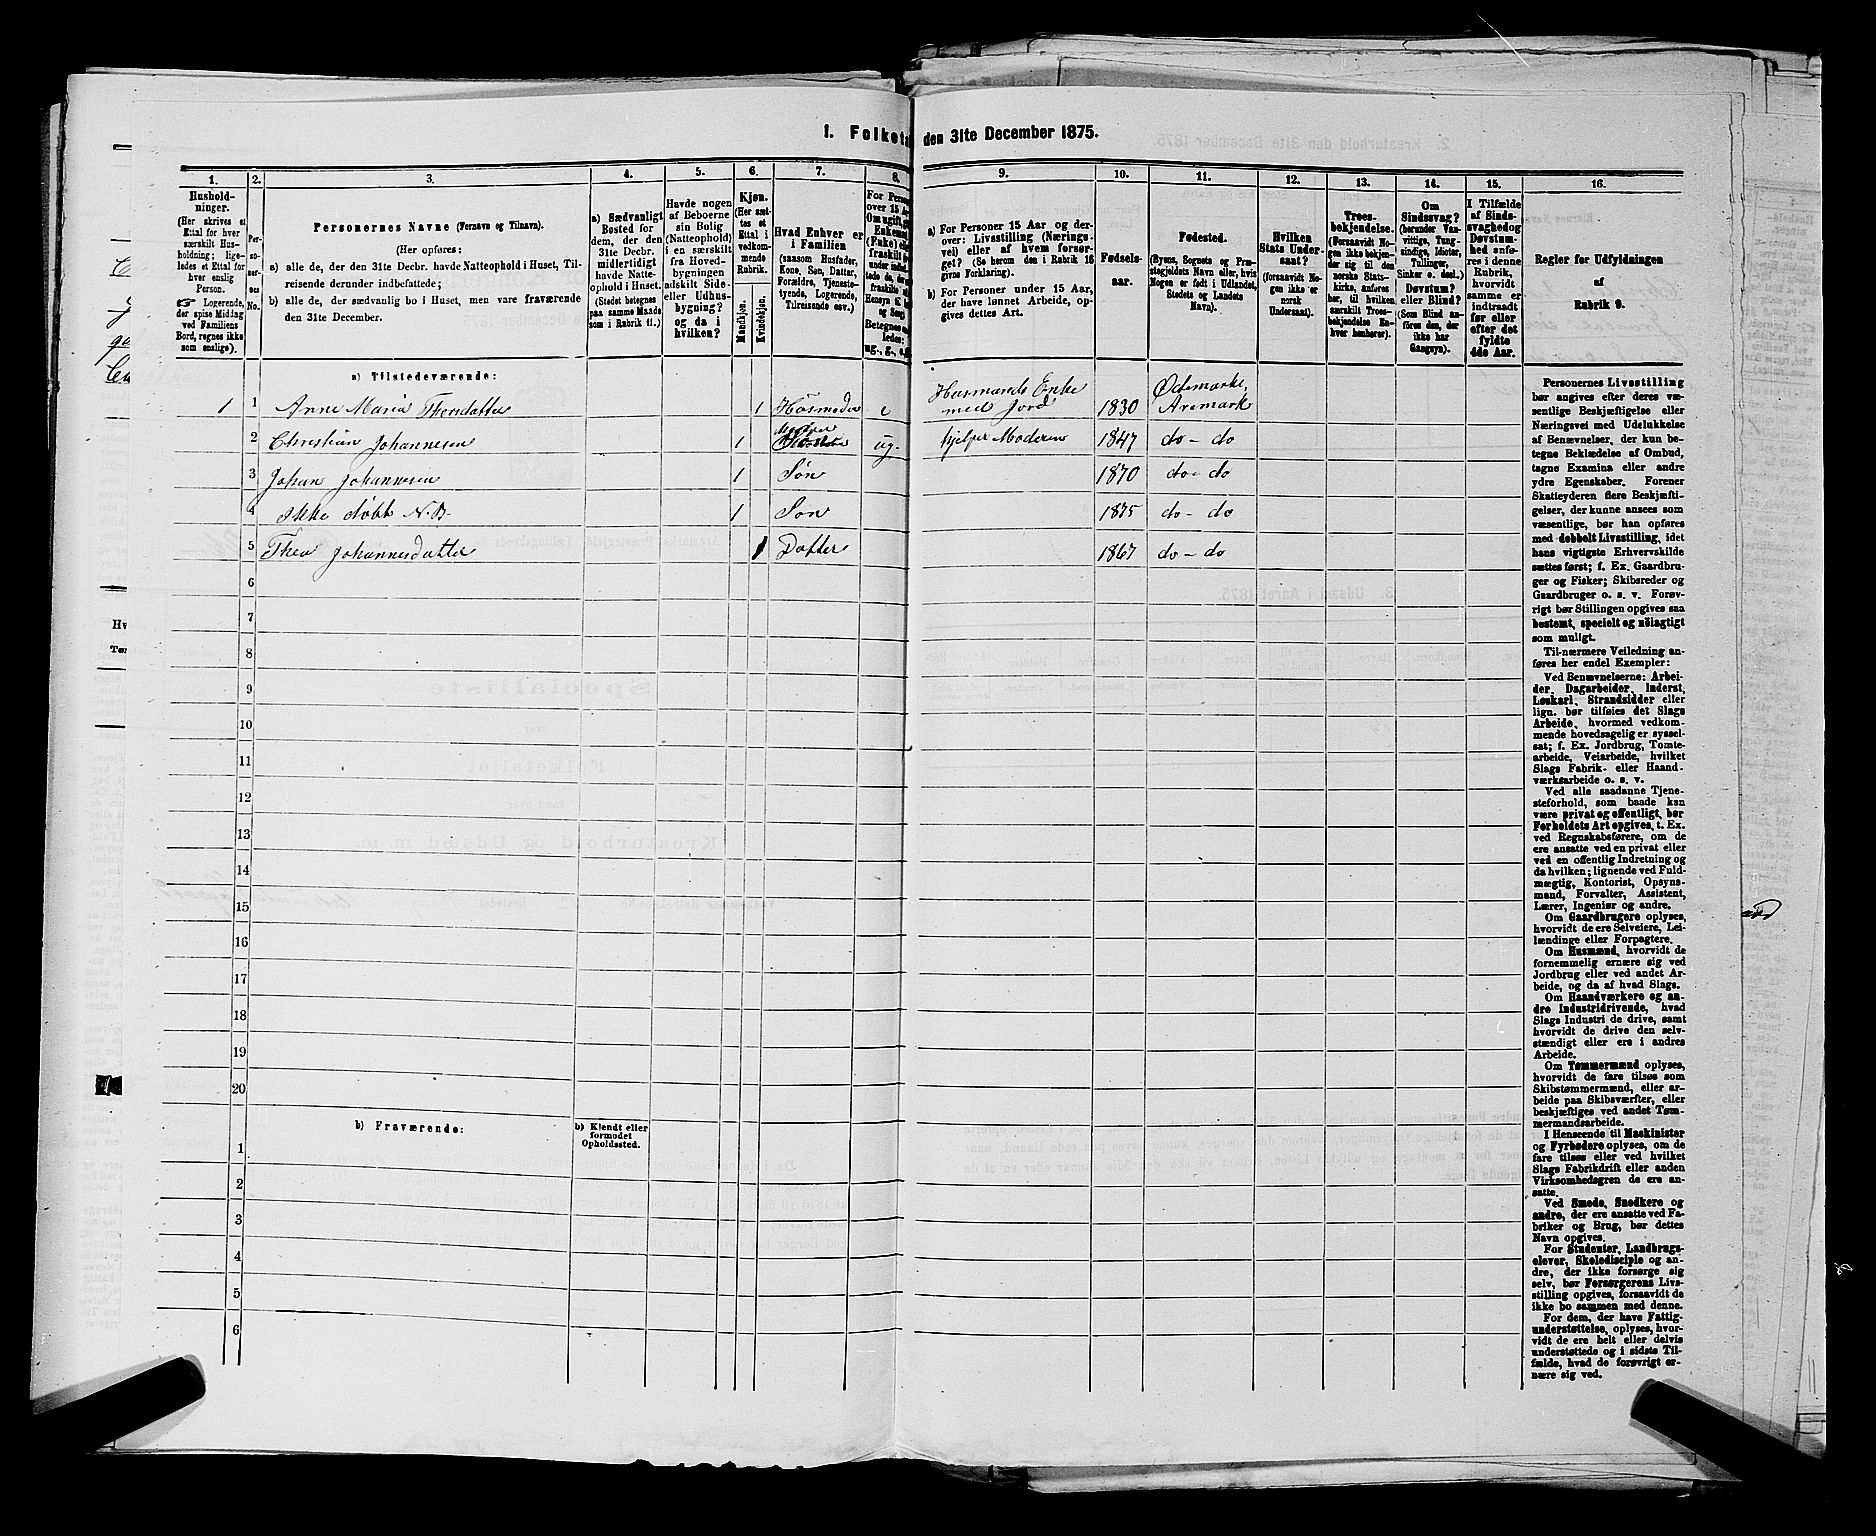 1. Folketa
den 31te December 1875.
1.
2.
3.
4.
5.
6.
7.
8.
9.
10.
11.
12.
13.
14.
15.
16.
Hushold-
ninger.
(Her skrives et
Ettal for hver
særskilt Hus-
holdning; lige-
ledes et Ettal for
hver enslig
Person.
☞ Logerende,
der spise Middag
ved Familiens
Bord, regnes ikke
som enslige).
Per-
so-
ner-
nes
No.
Personernes Navne (Fornavn og Tilnavn).
(Her opføres:
a) alle de, der den 31te Decbr. havde Natteophold i Huset, Til-
reisende derunder indbefattede;
b) alle de, der sædvanlig bo i Huset, men vare fraværende
den 31te December.
a) Sædvanligt
Bosted for
dem, der den
31te Decbr.
midlertidigt
havde Natte-
ophold i Huset.
(Stedet betegnes
paa samme Maade
som i Rubrik 11.)
Havde nogen
af Beboerne
sin Bolig
(Natteophold)
i en særskilt
fra Hoved-
bygningen
adskilt Side-
eller Udhus-
bygning?
og da i
hvilken?
Kjøn.
(Her sæt-
tes et
Ettal i
vedkom-
mende
Rubrik.
Mandkjøn.
Kvindekjøn.
Hvad Enhver er
i Familien
(saasom Husfader,
Kone, Søn, Datter,
Forældre, Tjeneste-
tyende, Logerende,
Tilreisende osv.)
For Pers
over 15 A
Om ugift, g
Enkema
(Enke) elle
fraskilt
Betegnes s
ledes:
ug., g., e,
a) For Personer 15 Aar og der-
over: Livsstilling (Nærings-
vei) eller af hvem forsør-
get? (Se herom den i Rubrik 16
givne Forklaring).
b) For Personer under 15 Aar,
der have lønnet Arbeide, op-
gives dettes Art.
Fødsels-
aar.
Fødested.
(Byens, Sognets og Præ-
stegjeldets Navn eller, hvis
Nogen er født i Udlandet,
Stedets og Landets
Navn).
Hvilken
Stats Under-
saat?
(forsaavidt No-
gen ikke er
norsk
Undersaat).
Troes-
bekjendelse.
(Forsaavidt No-
gen ikke bekjen-
der sig til den
norske Stats-
kirke, anføres
her, til hvilken
særskilt Troes-
bekjendelse En-
hver henhører).
Om
Sindssvag?
(herunder Van-
vittige, Tung-
sindige, Idioter,
Tullinger,
Sinker o. desl.)
Døvstum?
eller Blind?
(Som Blind an-
føres den, der
ikke har
Gangsyn).
I Tilfælde
af Sinds-
svaghed og
Døvstum-
hed anfø-
res i denne
Rubrik,
hvorvidt
samme er
indtraadt
før eller
efter det
fyldte
4de Aar.
Regler for Udfyldningen
af
Rubrik 9.
a) Tilstedeværende:
1 1 Anne Maria Thorsdatter 1 Husmoder e Husmands Enke med Jord 1830 Ødemarks, Aremark
2 Christian Johannesen 1 ug. hjelper Moderen 1847 do - do
3 Johan Johannesen 1 Søn 1870 do - do
4 Ikke døbt N.B. 1 Søn 1875 do - do
5 Thea Johannesdatter 1 Datter 1867 do - do
6
7
8
9
10
11
12
13
14
15
16
17
18
19
20
b) Fraværende:
b) Kjendt eller
formodet
Opholdssted.
1
2
3
4
5
6
Personernes Livsstilling
bør angives efter deres væ-
sentlige Beskjæftigelse eller
Næringsvei med Udelukkelse
af Benævnelser, der kun be-
tegne Beklædelse af Ombud,
tagne Examina eller andre
ydre Egenskaber. Forener
Skatteyderen flere Beskjæfti-
gelser, der kunne ansees som
væsentlige, bør han opføres
med dobbelt Livsstilling, idet
hans vigtigste Erhvervskilde
sættes først; f. Ex. Gaardbru-
ger og Fisker; Skibsreder og
Gaardbruger o. s. v. Forøv-
rigt bør Stillingen opgives saa
bestemt, specielt og nöiagtigt
som muligt.
Til nærmere Veiledning an-
føres her endel Exempler:
Ved Benævnelserne: Arbei-
der, Dagarbeider, Inderst,
Løskarl, Strandsidder eller
lign. bør tilføies det Slags
Arbeide, hvormed vedkom-
mende hovedsagelig er syssel-
sat; f. Ex. Jordbrug, Tomte-
arbeide, Veiarbeide, hvilket
Slags Fabrik- eller Haand-
værksarbeide o. s. v.
Ved alle saadanne Tjene-
steforhold, som baade kan
være privat og offentligt, bør
Forholdets Art opgives, t. Ex.
ved Regnskabsførere, om de
ere ansatte ved en privat eller
ved en offentlig Indretning og
da hvilken; lignende ved Fuld-
mægtig, Kontorist, Opsyns-
mand, Forvalter, Assistent,
Lærer, Ingeniør og andre.
Om Gaardbrugere oplyses,
hvorvidt de ere Selveiere, Lei-
lændinge eller Forpagtere.
Om Husmænd, hvorvidt de
fornemmelig ernære sig ved
Jordbrug eller ved andet Ar-
beide, og da af hvad Slags.
Om Haandværkere og an-
dre Industridrivende, hvad
Slags Industri de drive, samt
hvorvidt de drive den selv-
stændigt eller ere i andres
Arbeide.
Om Tømmermænd oplyses,
hvorvidt de fare tilsøs som
Skibstømmermænd, eller ar-
beide paa Skibsværfter, eller
beskjæftiges ved andet Tøm-
mermandsarbeide.
I Henseende til Maskinister
og Fyrbødere oplyses, om de
fare tilsøs eller ved hvilket
Slags Fabrikdrift eller anden
Virksomhedsgren de ere an-
satte.
Ved Smede, Snedkere og
andre, der ere ansatte ved Fa-
briker og Brug, bør dettes
Navn opgives.
For Studenter, Landbrugs-
elever, Skoledisciple og an-
dre, der ikke forsørge sig
selv, bør Forsørgerens Livs-
stilling opgives, forsaavidt de
ikke bo sammen med denne.
For dem, der have Fattig-
understøttelse, oplyses, hvor-
vidt de ere helt eller delvis
understøttede og i sidste Til-
fælde, hvad de forøvrigt er-
nære sig ved.